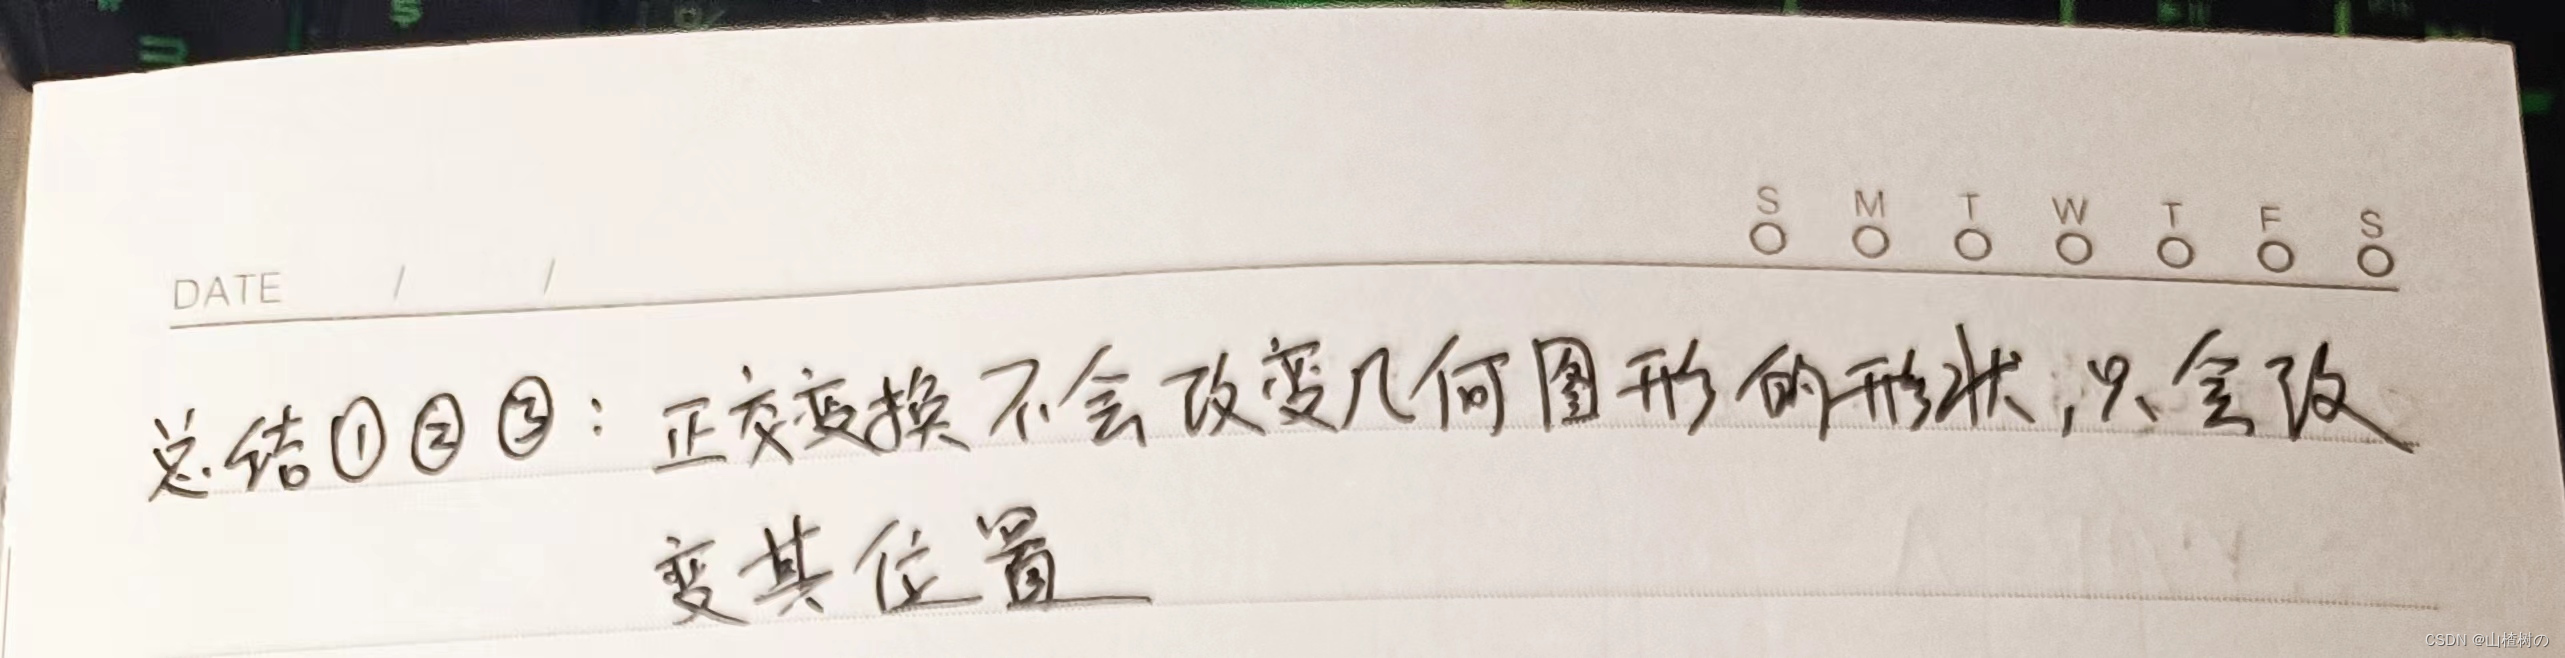 S M T W T F S
DATE / /
总结①②③：正交变换不会改变几何图形的形状，只会改
变其位置
CSDN @山楂树の